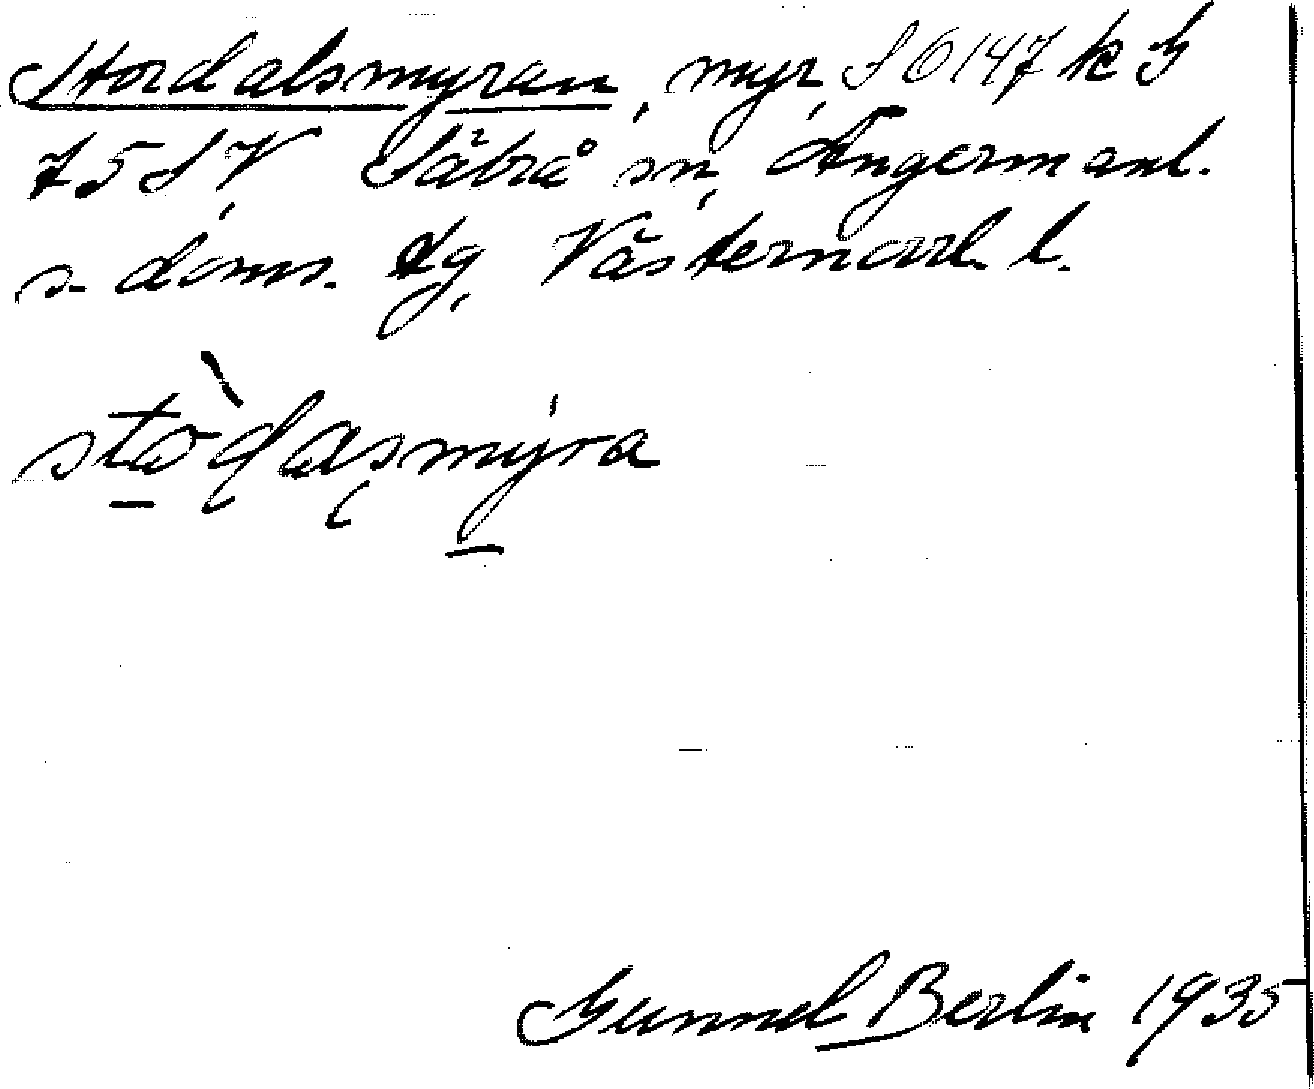 Stordalsmyran, myr, S 6147 k G
75 SV, Säbrå sn, Ångermanl.
s. doms. tg, Västernorrl. l.
stòḍaṣmýra
Gunnel Berlin 1935